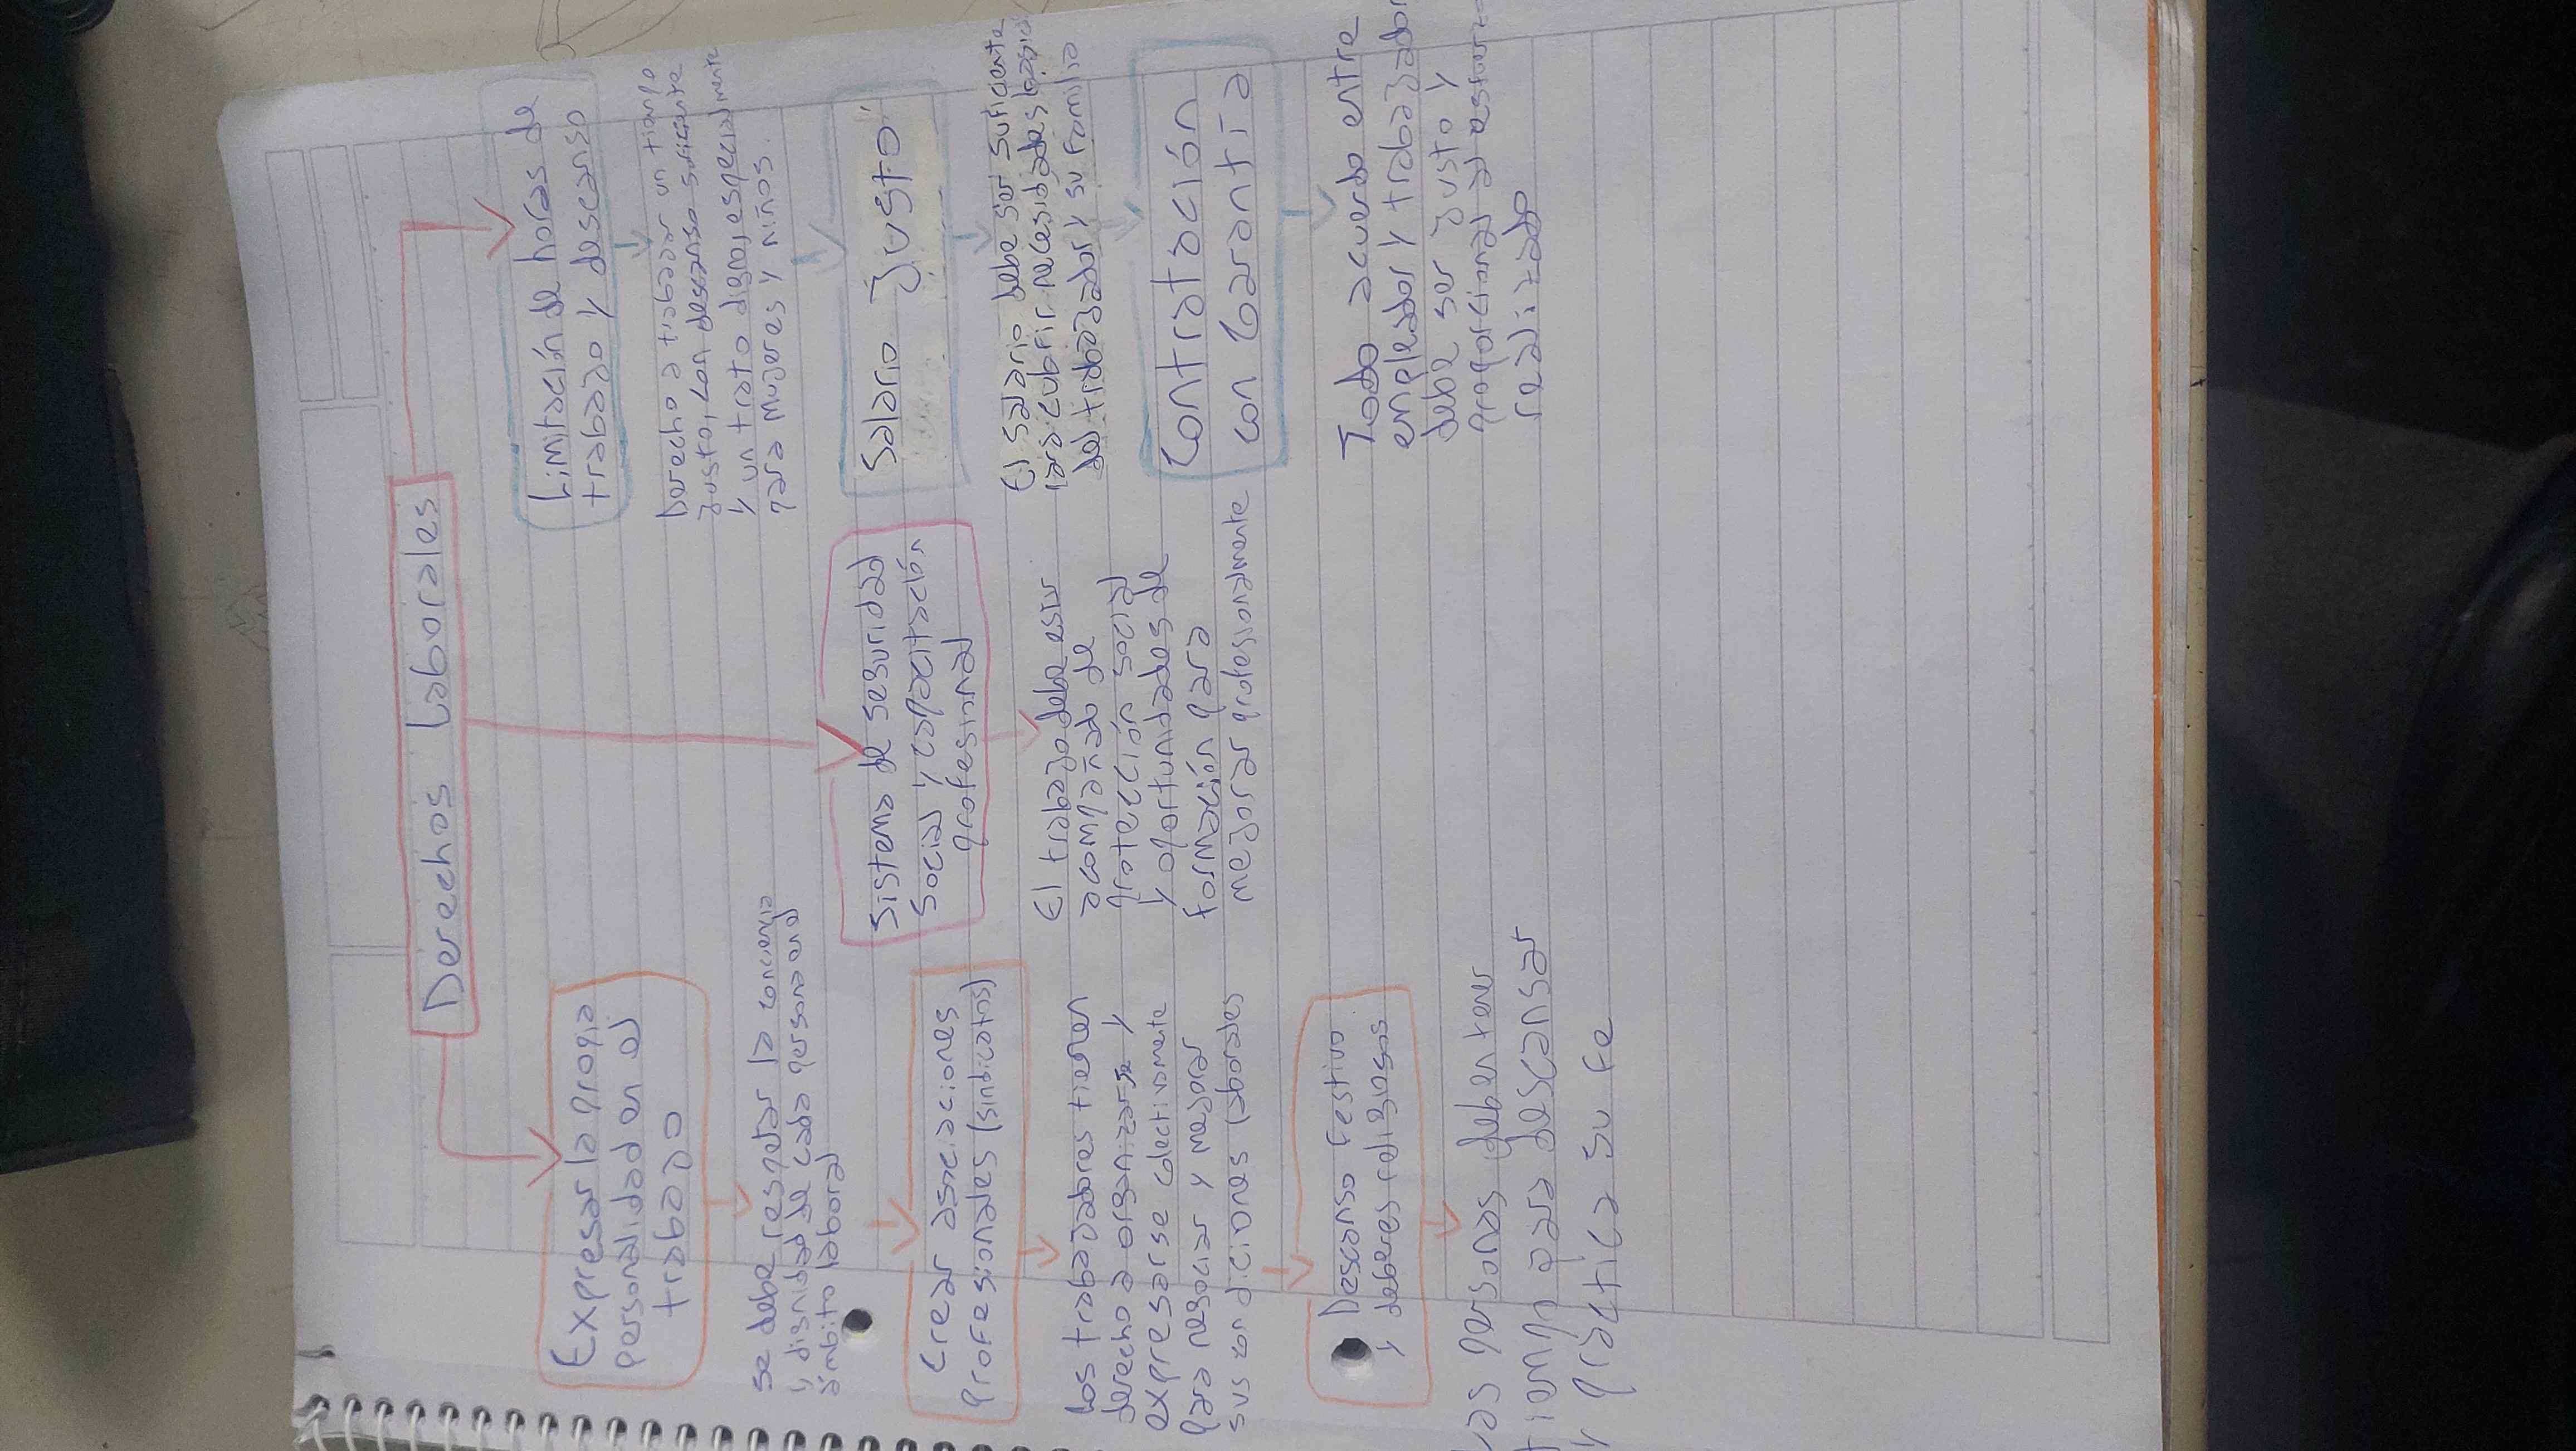 Derechos Laborales
Expresar la propia
personalidad en el
trabajo
se debe respetar la conciencia
y dignidad de cada persona en el
ámbito laboral
Crear asociaciones
Profesionales (sindicatos)
Los trabajadores tienen
derecho a organizarse y
expresarse colectivamente
para negociar y mejorar
sus condiciones laborales
Descanso Festivo
y deberes religiosos
Las personas deben tener
tiempo para descansar
y práctica su fe
Sistema de seguridad
social y capacitación
profesional
El trabajo debe estar
acompañado de
protección social
y oportunidades de
Formación para
mejorar profesionalmente
Limitación de horas de
trabajo y descanso
Derecho a trabajar un tiempo
justo, con descanso suficiente
y un trato digno, especialmente
para mujeres y niños.
Salario justo
El salario debe ser suficiente
para cubrir necesidades básicas
del trabajador y su familia
Contratación
con Garantía
Todo acuerdo entre
empleador y trabajador
debe ser justo y
proporcional al esfuerzo
realizado